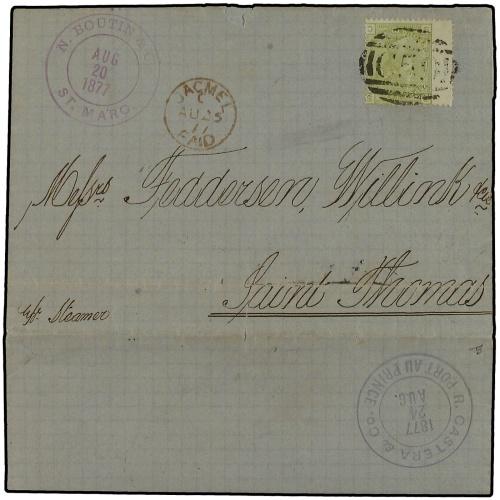 N. BOUTIN
AUG
20
1877
ST. MARC
JACMEL
C
AU 25
77
PAID
Messrs Feddersen, Willink &Co
Saint Thomas
pr Steamer
R. CASTERA & CO
24
AUG.
1877
PORT AU PRINCE